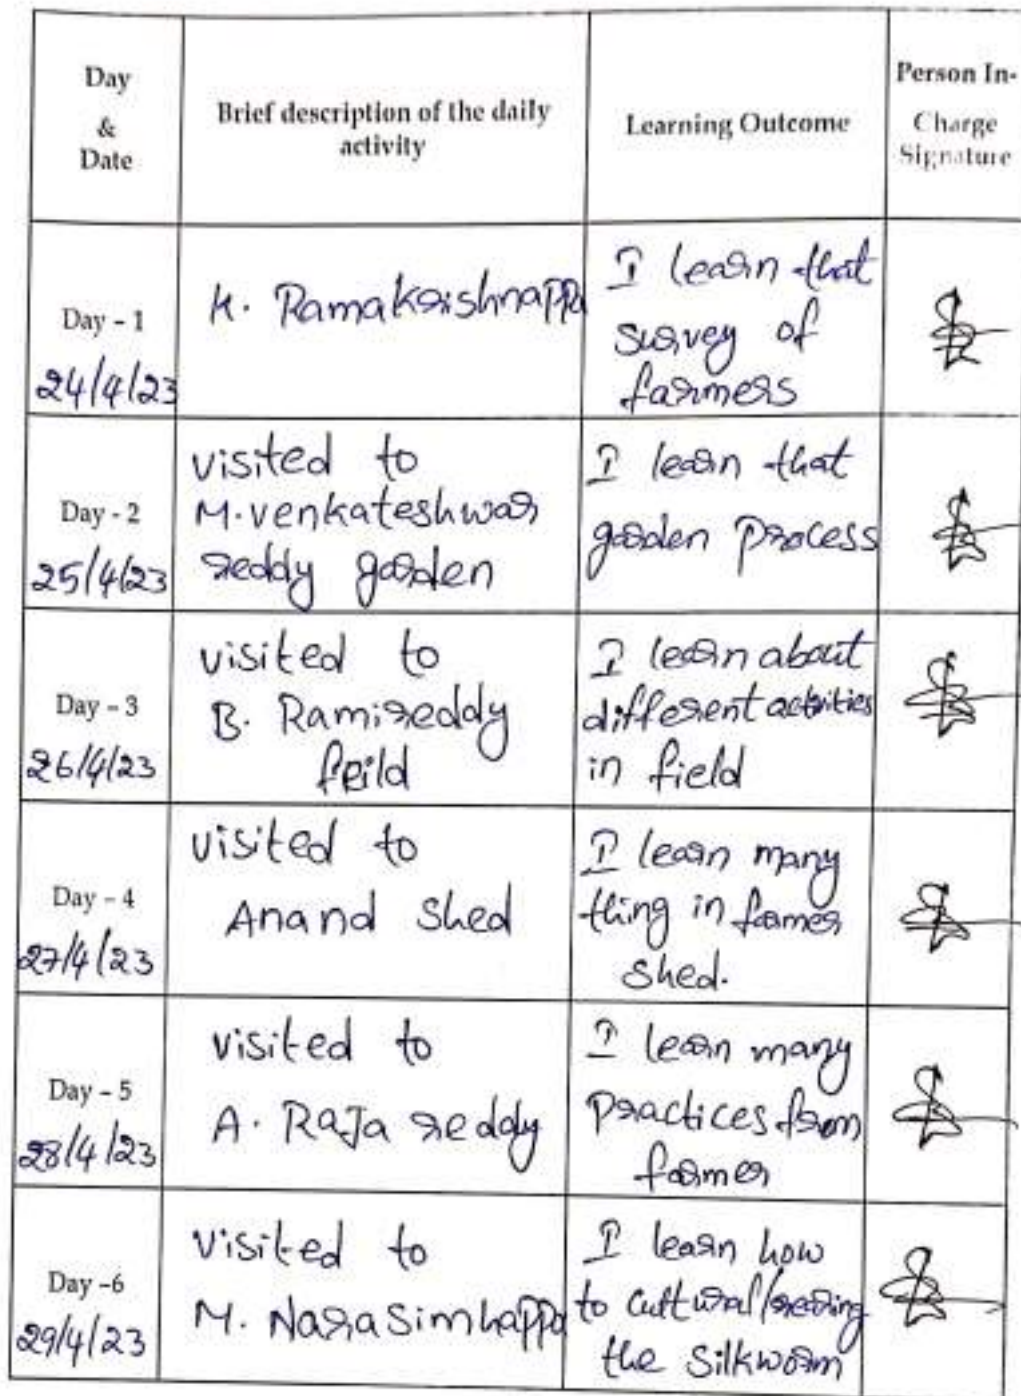 Day
&
Date
Brief description of the daily
activity
Learning Outcome
Person In-
Charge
Signature
Day - 1
24/4/23
K. Ramakrishnappa
I learn that
survey of
farmers
Day - 2
25/4/23
visited to
M.venkateshwar
reddy garden
I learn that
garden process
Day – 3
26/4/23
visited to
B. Ramireddy
feild
I learn about
different activities
in field
Day – 4
27/4/23
visited to
Anand shed
I learn many
thing in farmer
shed.
Day – 5
28/4/23
visited to
A. Raja reddy
I learn many
Practices from
farmer
Day –6
29/4/23
visited to
M. Narasimhappa
I learn how
to cultural/rearing
the silkworm